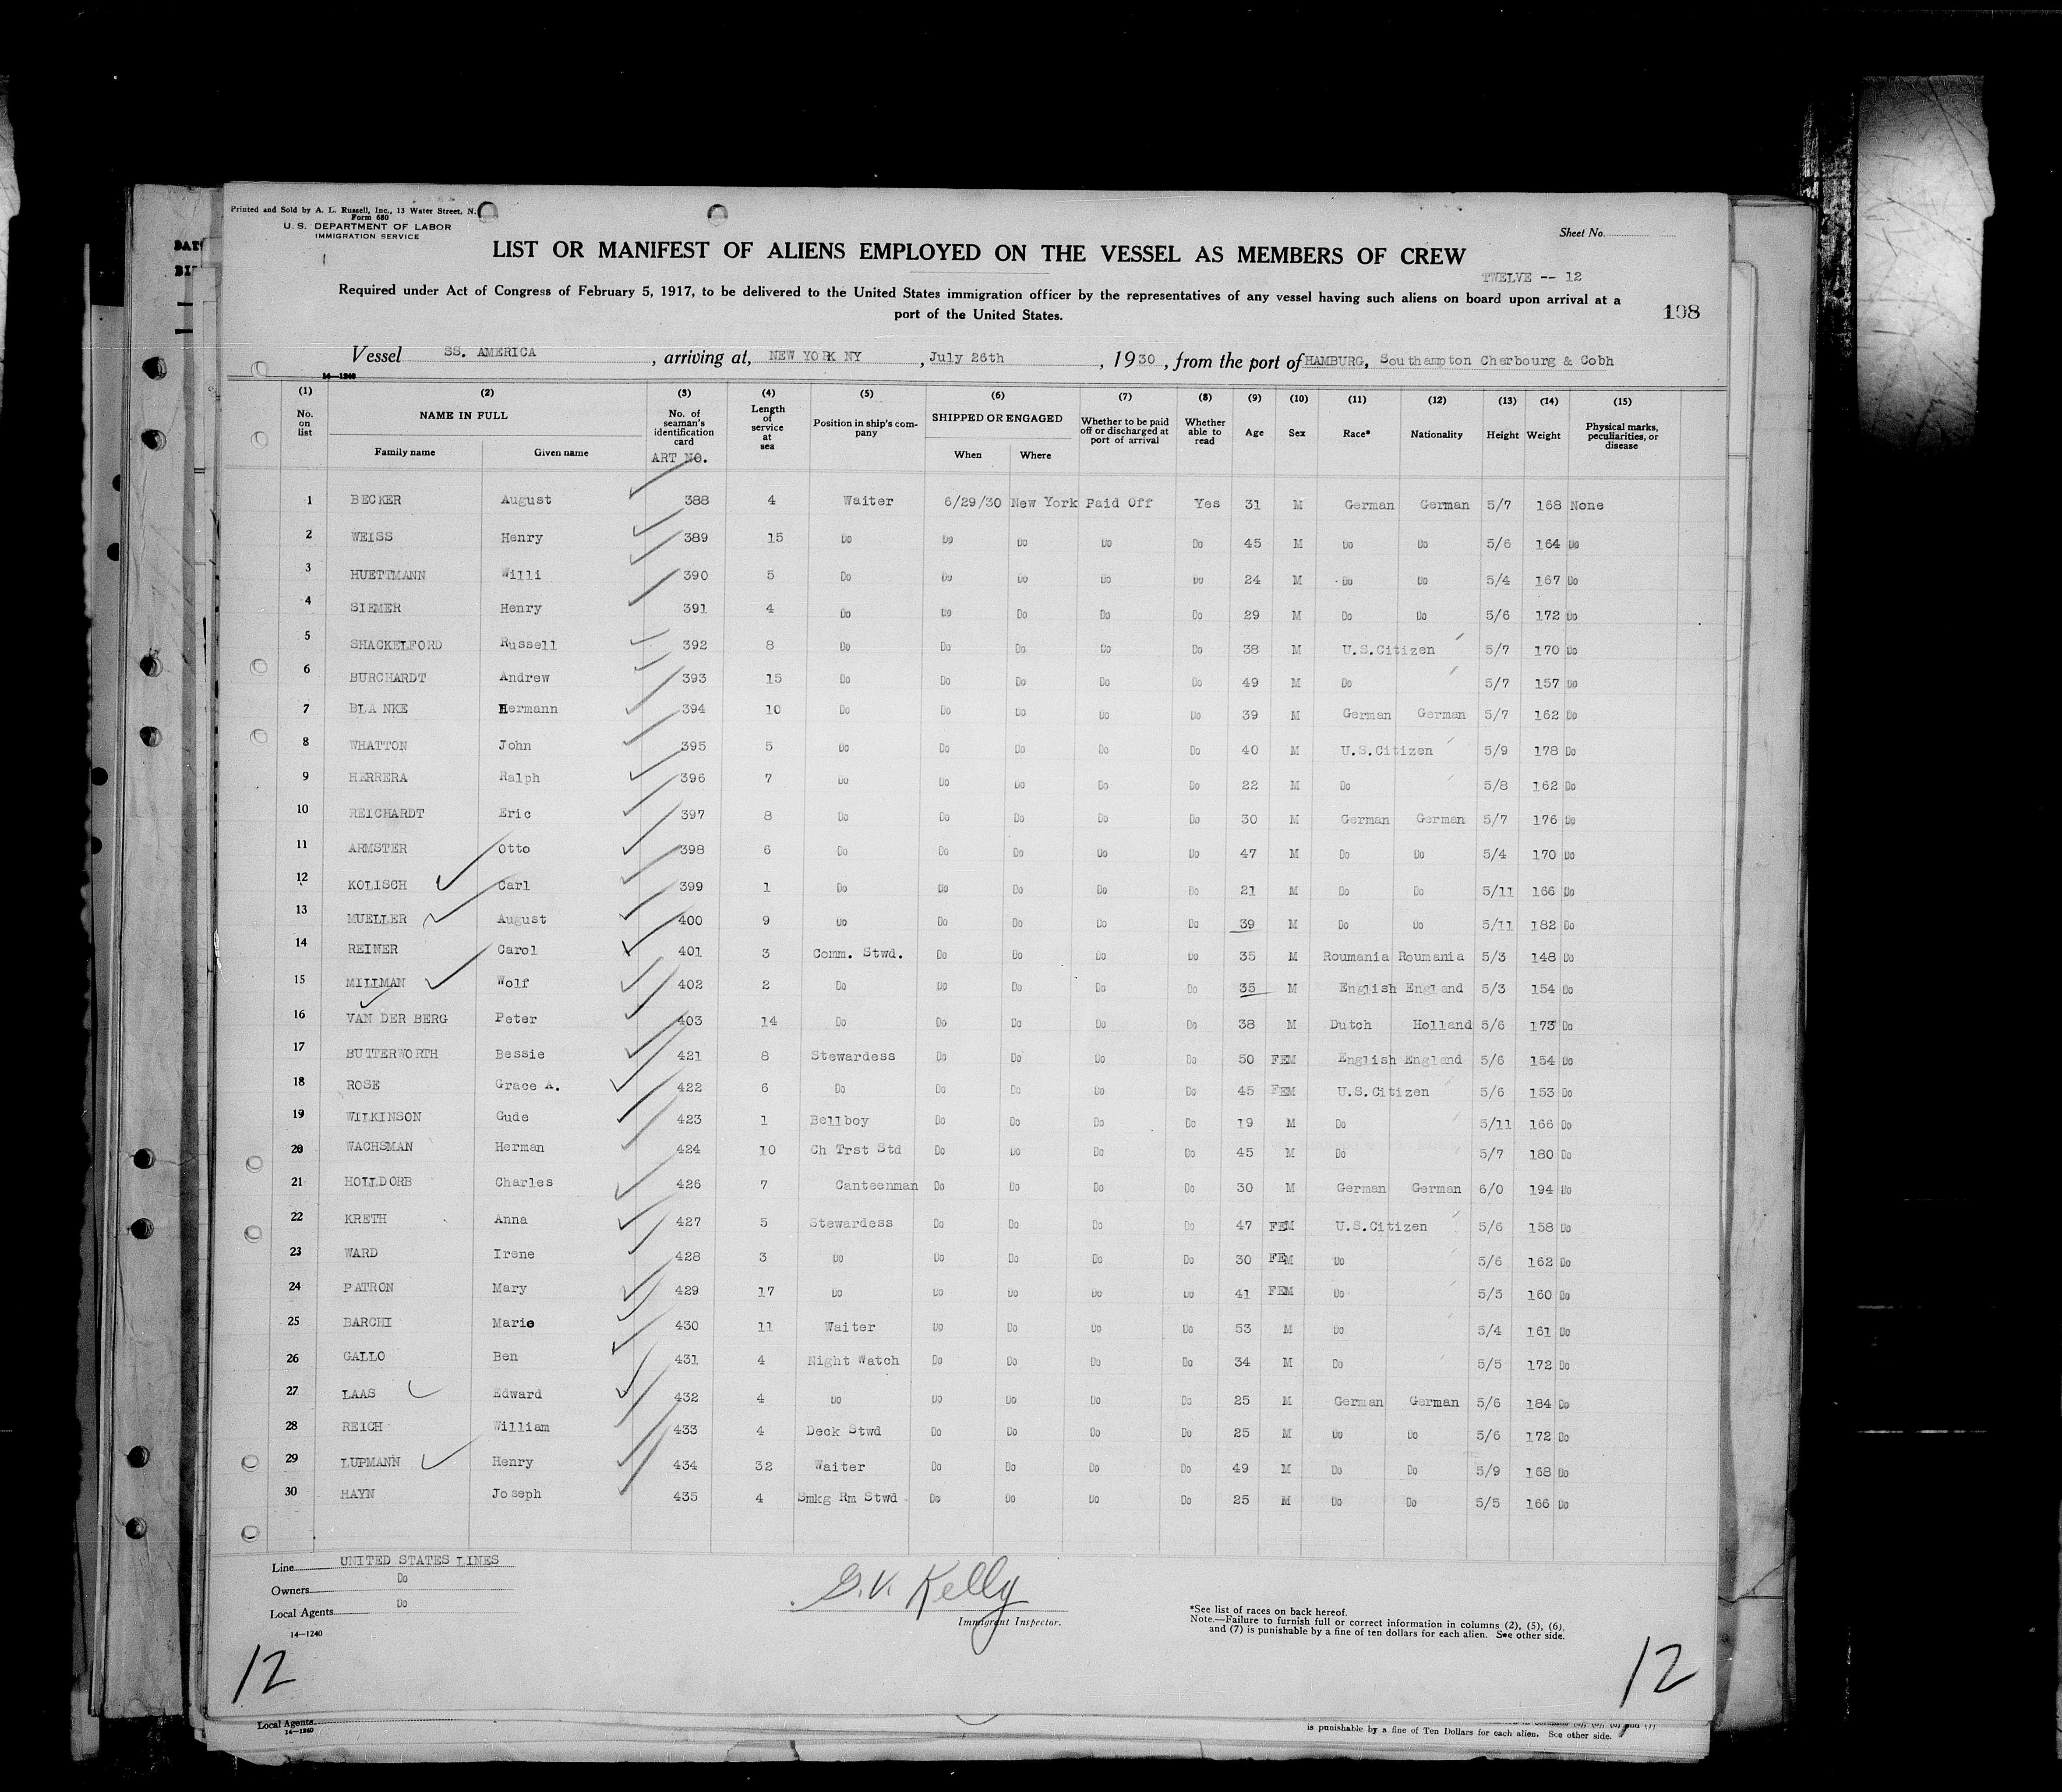 Printed and Sold by A. L. Russell, Inc., 13 Water Street, N.
Form 680
U. S. DEPARTMENT OF LABOR
IMMIGRATION SERVICE
Sheet No.
LIST OR MANIFEST OF ALIENS EMPLOYED ON THE VESSEL AS MEMBERS OF CREW
TWELVE -- 12
Required under Act of Congress of February 5, 1917, to be delivered to the United States immigration officer by the representatives of any vessel having such aliens on board upon arrival at a
port of the United States.
198
Vessel SS. AMERICA, arriving at, NEW YORK NY, July 26th, 1930, from the port of HAMBURG, Southampton Cherbourg & Cobh
14—1240
(1) (2) (3) (4) (5) (6) (7) (8) (9) (10) (11) (12) (13) (14) (15)
No. on list NAME IN FULL No. of seaman's identification card Length of service at sea Position in ship's company SHIPPED OR ENGAGED Whether to be paid off or discharged at port of arrival Whether able to read Age Sex Race* Nationality Height Weight Physical marks, peculiarities, or disease
Family name Given name ART NO. When Where
1 BECKER August 388 4 Waiter 6/29/30 New York Paid Off Yes 31 M German German 5/7 168 None
2 WEISS Henry 389 15 Do Do Do Do Do 45 M Do Do 5/6 164 Do
3 HUETTMANN Willi 390 5 Do Do Do Do Do 24 M Do Do 5/4 167 Do
4 SIEMER Henry 391 4 Do Do Do Do Do 29 M Do Do 5/6 172 Do
5 SHACKELFORD Russell 392 8 Do Do Do Do Do 38 M U.S.Citizen 5/7 170 Do
6 BURCHARDT Andrew 393 15 Do Do Do Do Do 49 M Do 5/7 157 Do
7 BLANKE Hermann 394 10 Do Do Do Do Do 39 M German German 5/7 162 Do
8 WHATTON John 395 5 Do Do Do Do Do 40 M U.S.Citizen 5/9 178 Do
9 HERRERA Ralph 396 7 Do Do Do Do Do 22 M Do 5/8 162 Do
10 REICHARDT Eric 397 8 Do Do Do Do Do 30 M German German 5/7 176 Do
11 ARMSTER Otto 398 6 Do Do Do Do Do 47 M Do Do 5/4 170 Do
12 KOLISCH Carl 399 1 Do Do Do Do Do 21 M Do Do 5/11 166 Do
13 MUELLER August 400 9 Do Do Do Do Do 39 M Do Do 5/11 182 Do
14 REINER Carol 401 3 Comm. Stwd. Do Do Do Do 35 M Roumania Roumania 5/3 148 Do
15 MILLMAN Wolf 402 2 Do Do Do Do Do 35 M English England 5/3 154 Do
16 VAN DER BERG Peter 403 14 Do Do Do Do Do 38 M Dutch Holland 5/6 173 Do
17 BUTTERWORTH Bessie 421 8 Stewardess Do Do Do Do 50 FEM English England 5/6 154 Do
18 ROSE Grace A. 422 6 Do Do Do Do Do 45 FEM U.S.Citizen 5/6 153 Do
19 WILKINSON Gude 423 1 Bellboy Do Do Do Do 19 M Do 5/11 166 Do
20 WACHSMAN Herman 424 10 Ch Trst Std Do Do Do Do 45 M Do 5/7 180 Do
21 HOLLDORB Charles 426 7 Canteenman Do Do Do Do 30 M German German 6/0 194 Do
22 KRETH Anna 427 5 Stewardess Do Do Do Do 47 FEM U.S.Citizen 5/6 158 Do
23 WARD Irene 428 3 Do Do Do Do Do 30 FEM Do 5/6 162 Do
24 PATRON Mary 429 17 Do Do Do Do Do 41 FEM Do 5/5 160 Do
25 BARCHI Mario 430 11 Waiter Do Do Do Do 53 M Do 5/4 161 Do
26 GALLO Ben 431 4 Night Watch Do Do Do Do 34 M Do 5/5 172 Do
27 LAAS Edward 432 4 Do Do Do Do Do 25 M German German 5/6 184 Do
28 REICH William 433 4 Deck Stwd Do Do Do Do 25 M Do Do 5/6 172 Do
29 LUPMANN Henry 434 32 Waiter Do Do Do Do 49 M Do Do 5/9 168 Do
30 HAYN Joseph 435 4 Smkg Rm Stwd Do Do Do Do 25 M Do Do 5/5 166 Do
Line UNITED STATES LINES
Owners Do
Local Agents Do
14—1240
G.V. Kelly
Immigrant Inspector.
*See list of races on back hereof.
Note.—Failure to furnish full or correct information in columns (2), (5), (6),
and (7) is punishable by a fine of ten dollars for each alien. See other side.
12
12
Local Agents
14—1240
is punishable by a fine of Ten Dollars for each alien. See other side.